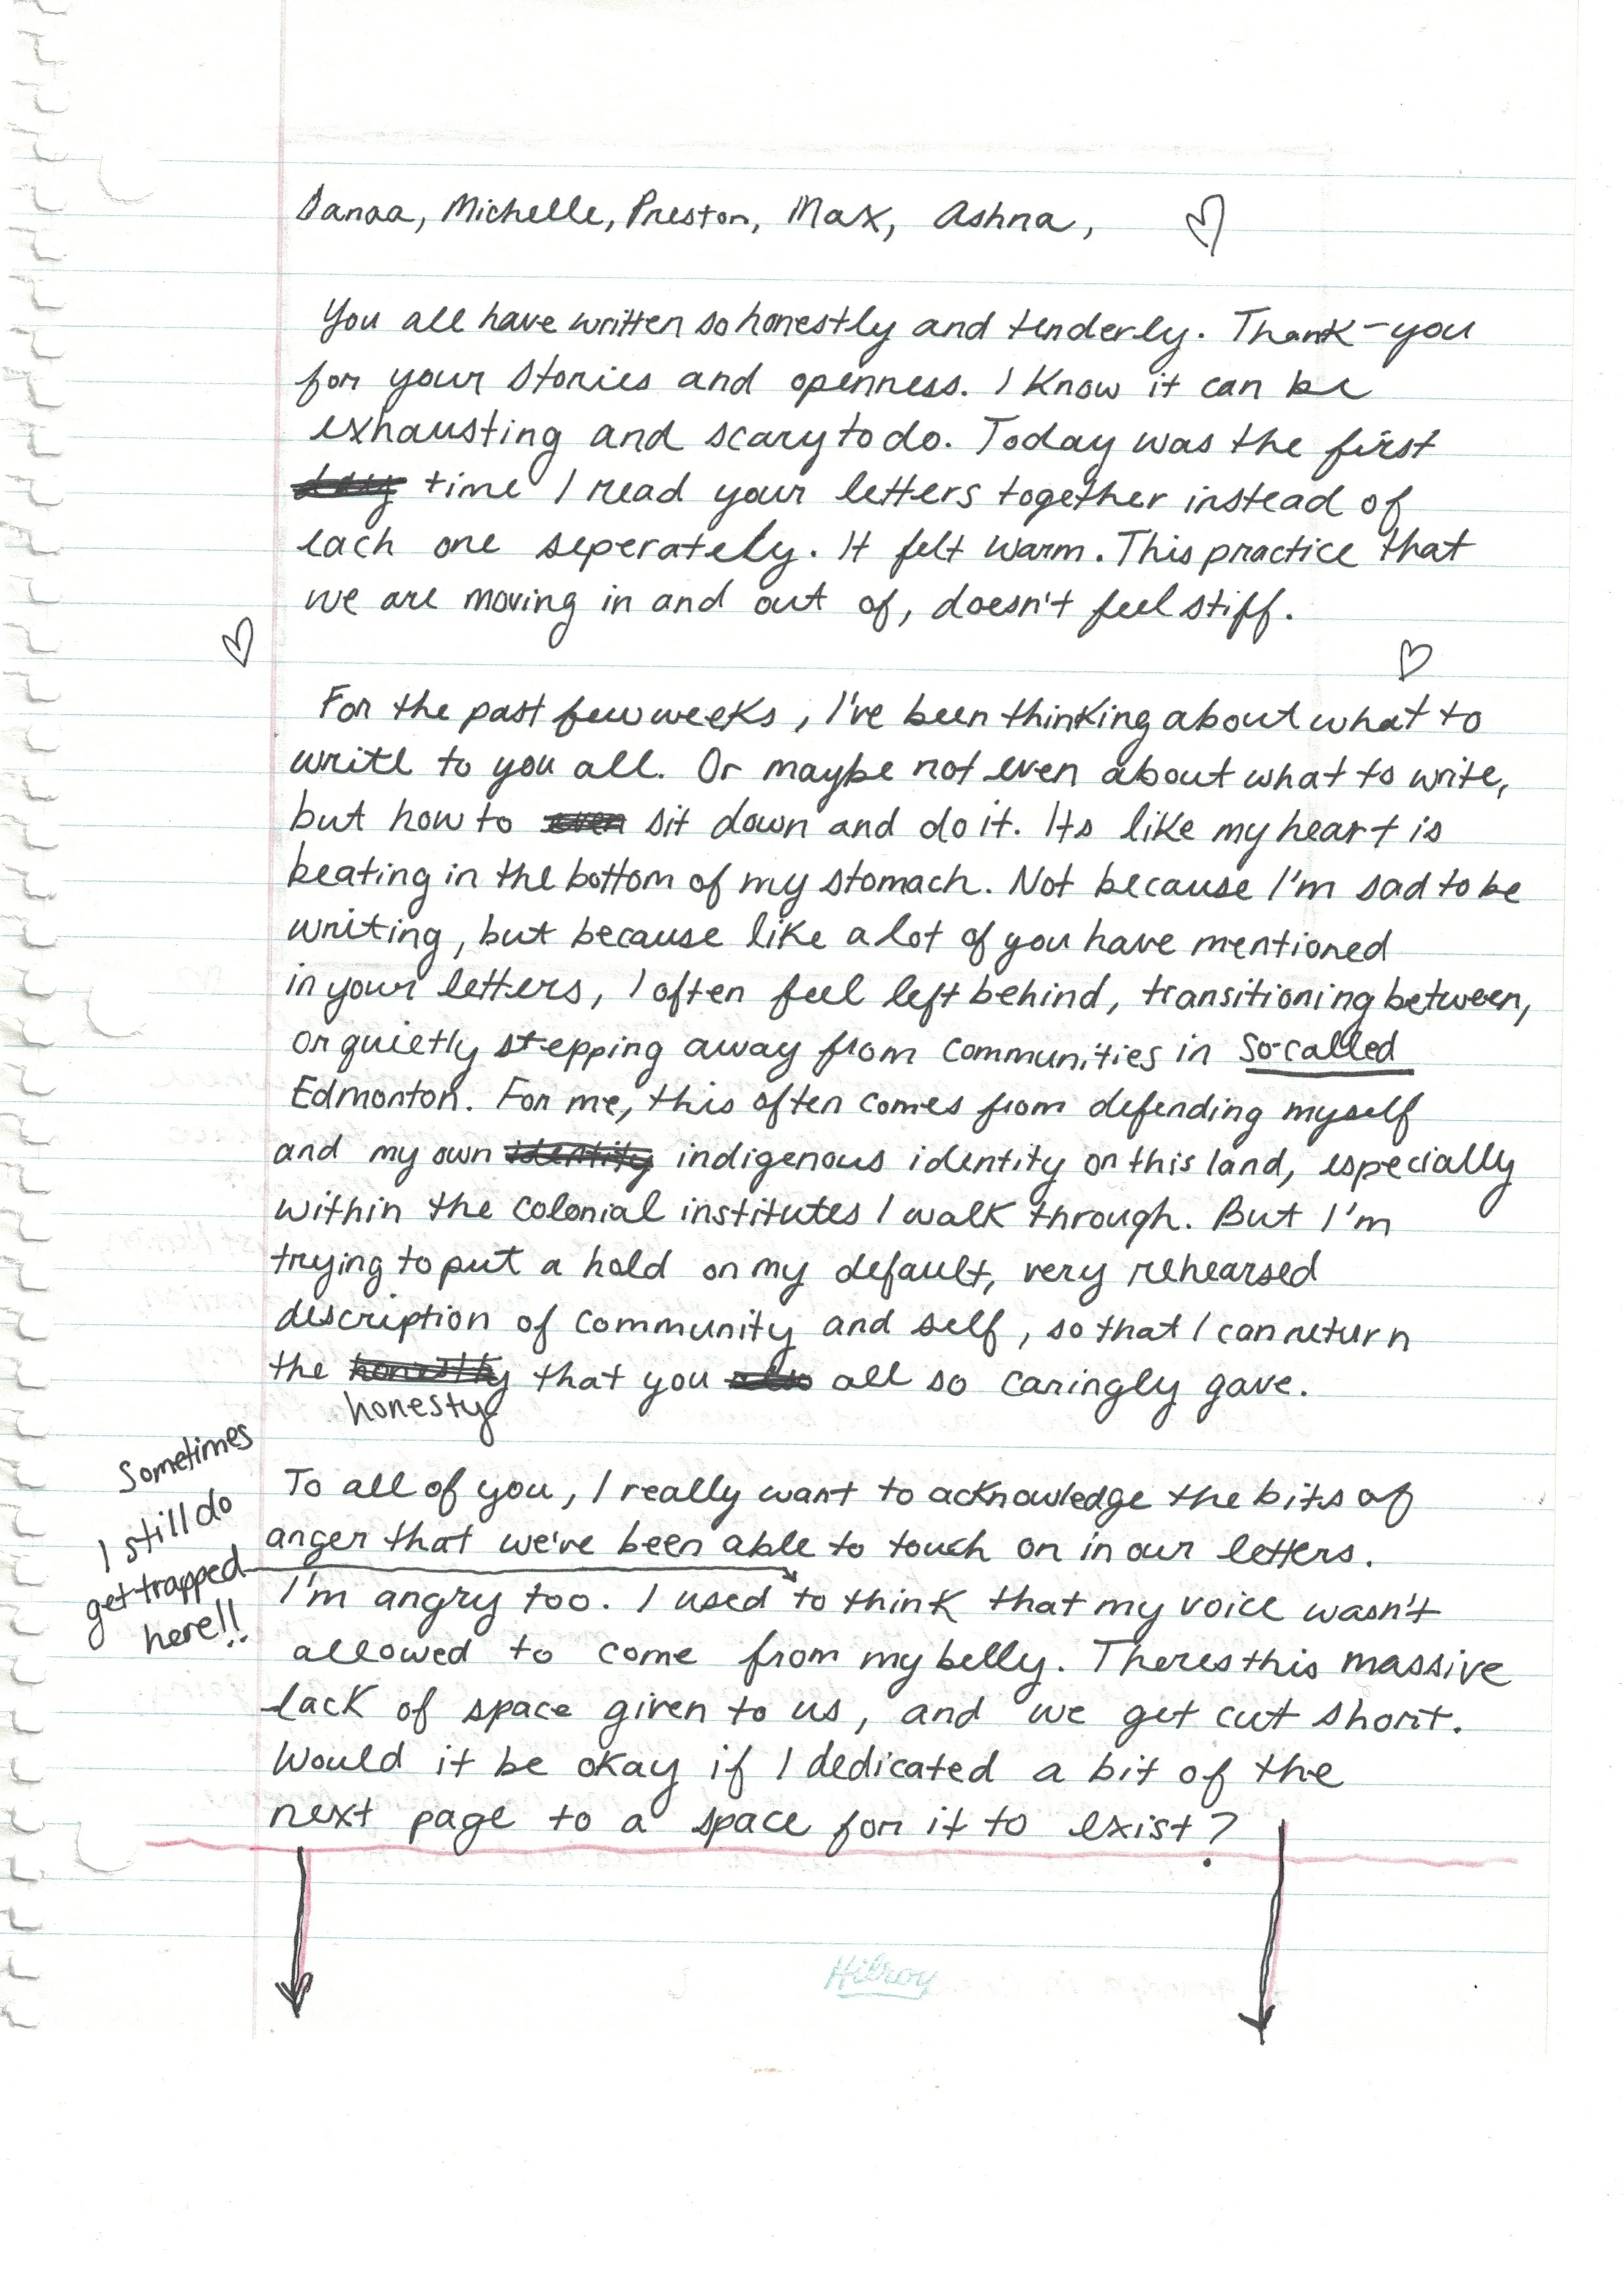 Sanaa, Michelle, Preston, Max, Ashna,
You all have written so honestly and tenderly. Thank-you
for your stories and openness. I know it can be
exhausting and scary to do. Today was the first
day time I read your letters together instead of
each one seperately. It felt warm. This practice that
we are moving in and out of, doesn't feel stiff.
For the past few weeks, I've been thinking about what to
write to you all. Or maybe not even about what to write,
but how to even sit down and do it. Its like my heart is
beating in the bottom of my stomach. Not because I'm sad to be
writing, but because like a lot of you have mentioned
in your letters, I often feel left behind, transitioning between,
or quietly stepping away from communities in so-called
Edmonton. For me, this often comes from defending myself
and my own identity indigenous identity on this land, especially
within the colonial institutes I walk through. But I'm
trying to put a hold on my default, very rehearsed
description of community and self, so that I can return
the that you also all so caringly gave.
honesty
Sometimes
I still do
get trapped
here!!
To all of you, I really want to acknowledge the bits of
anger that we've been able to touch on in our letters.
I'm angry too. I used to think that my voice wasn't
allowed to come from my belly. Theres this massive
lack of space given to us, and we get cut short.
Would it be okay if I dedicated a bit of the
next page to a space for it to exist?
Hilroy